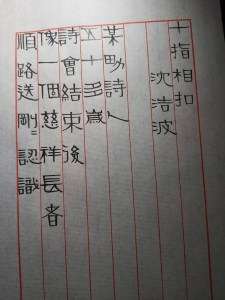 十指相扣
沈浩波
某男詩人
五十多歲
詩會結束後
像一個慈祥長者
順路送剛剛認識